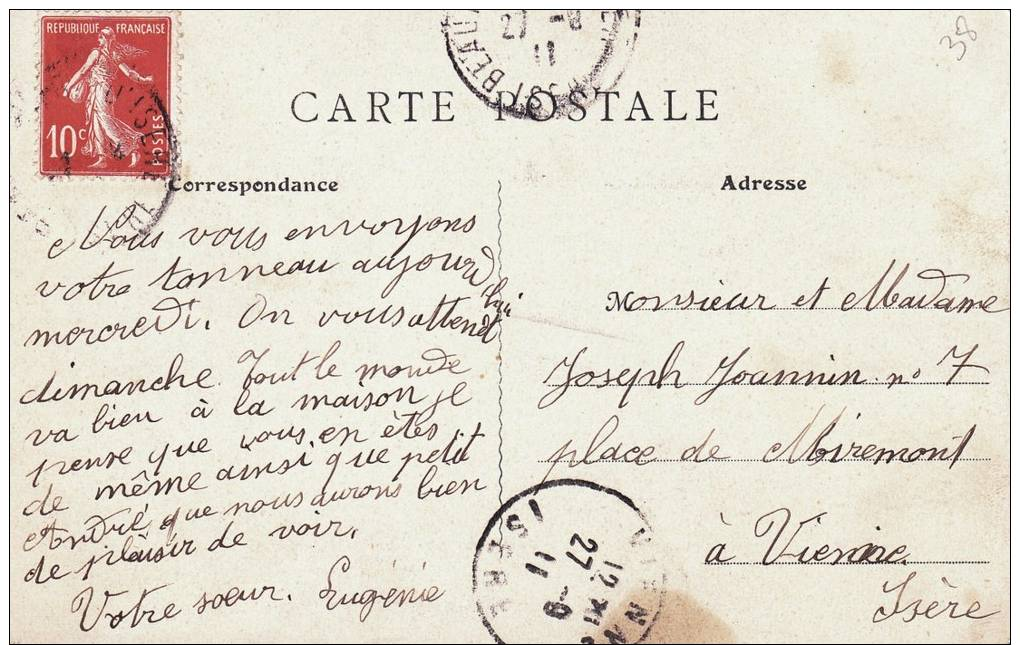 RÉPUBLIQUE FRANÇAISE
10c
POSTES
38
27 -9
11
CARTE POSTALE
Correspondance
Adresse
Nous vous envoyons
votre tonneau aujourd
hui
mercredi. On vous attend
dimanche. Tout le monde
va bien à la maison je
pense que vous en êtes
de même ainsi que petit
André que nous aurons bien
de plaisir de voir.
Votre sœur. Eugénie
Monsieur et Madame
Joseph Joannin no 7
place de Miremont
à Vienne
Isère
VIENNE
12
27 -9
11
ISERE